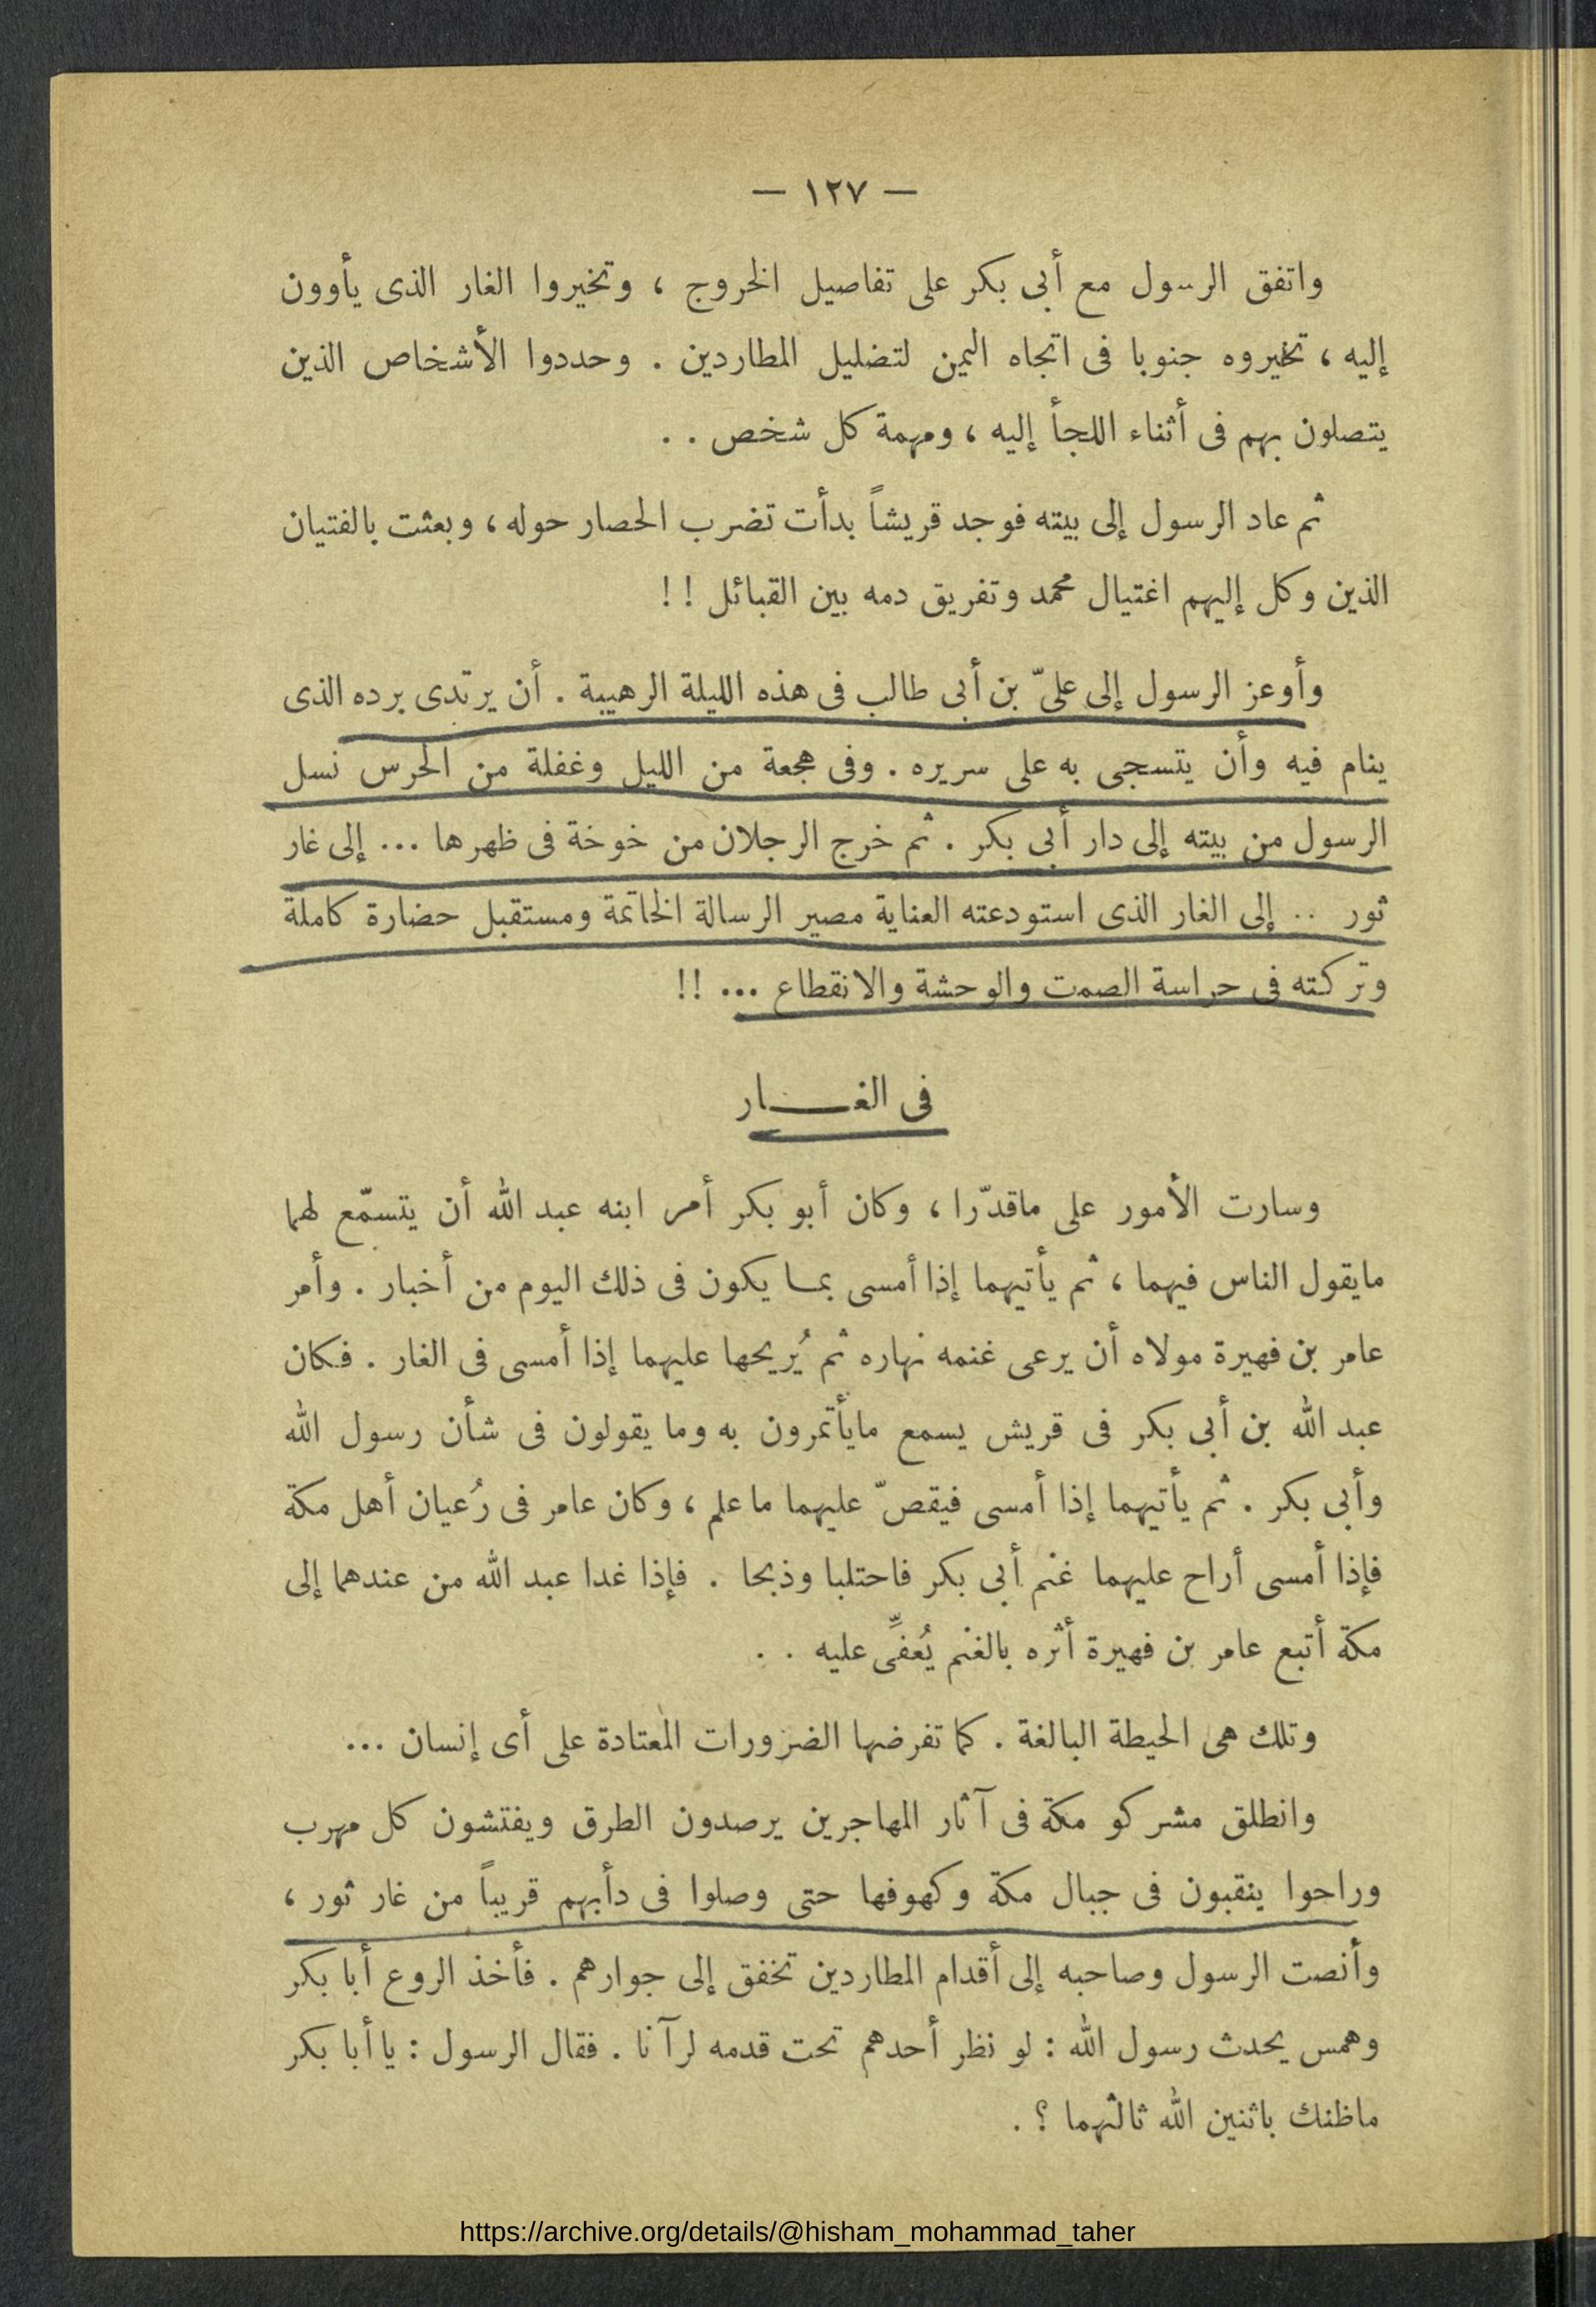 — ١٢٧ —
واتفق الرسول مع أبى بكر على تفاصيل الخروج ، وتخيروا الغار الذى يأوون
إليه ، تخيروه جنوبا فى اتجاه اليمن لتضليل المطاردين . وحددوا الأشخاص الذين
يتصلون بهم فى أثناء اللجأ إليه ، ومهمة كل شخص . .
ثم عاد الرسول إلى بيته فوجد قريشاً بدأت تضرب الحصار حوله ، وبعثت بالفتيان
الذين وكل إليهم اغتيال محمد وتفريق دمه بين القبائل ! !
وأوعز الرسول إلى علىّ بن أبى طالب فى هذه الليلة الرهيبة . أن يرتدى برده الذى
ينام فيه وأن يتسجى به على سريره . وفى هجعة من الليل وغفلة من الحرس نسل
الرسول من بيته إلى دار أبى بكر . ثم خرج الرجلان من خوخة فى ظهرها ... إلى غار
ثور .. إلى الغار الذى استودعته العناية مصير الرسالة الخاتمة ومستقبل حضارة كاملة
وتركته فى حراسة الصمت والوحشة والانقطاع ... !!
فى الغـــــار
وسارت الأمور على ماقدّرا ، وكان أبو بكر أمر ابنه عبد الله أن يتسمّع لهما
مايقول الناس فيهما ، ثم يأتيهما إذا أمسى بمـا يكون فى ذلك اليوم من أخبار . وأمر
عامر بن فهيرة مولاه أن يرعى غنمه نهاره ثم يُريحها عليهما إذا أمسى فى الغار . فكان
عبد الله بن أبى بكر فى قريش يسمع مايأتمرون به وما يقولون فى شأن رسول الله
وأبى بكر . ثم يأتيهما إذا أمسى فيقصّ عليهما ما علم ، وكان عامر فى رُعيان أهل مكة
فإذا أمسى أراح عليهما غنم أبى بكر فاحتلبا وذبحا . فإذا غدا عبد الله من عندهما إلى
مكة أتبع عامر بن فهيرة أثره بالغنم يُعفِّى عليه . .
وتلك هى الحيطة البالغة . كما تفرضها الضرورات المعتادة على أى إنسان ...
وانطلق مشركو مكة فى آثار المهاجرين يرصدون الطرق ويفتشون كل مهرب
وراحوا ينقبون فى جبال مكة وكهوفها حتى وصلوا فى دأبهم قريباً من غار ثور ،
وأنصت الرسول وصاحبه إلى أقدام المطاردين تخفق إلى جوارهم . فأخذ الروع أبا بكر
وهمس يحدث رسول الله : لو نظر أحدهم تحت قدمه لرآنا . فقال الرسول : يا أبا بكر
ماظنك باثنين الله ثالثهما ؟ .
https://archive.org/details/@hisham_mohammad_taher